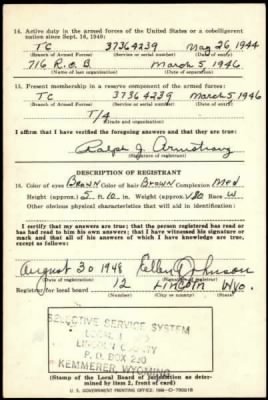 14. Active duty in the armed forces of the United States or a cobelligerent
nation since Sept. 16, 1940:
TC 37364239 May 26, 1944
(Branch of Armed Forces) (Service or serial number) (Date of entry)
716 R.O.B. March 5, 1946.
(Name of last organization) (Date of separation)
15. Present membership in a reserve component of the armed forces:
TC 37364239 March 5, 1946
(Branch of Armed Forces) (Service or serial number)
T/4
(Grade and organization)
I affirm that I have verified the foregoing answers and that they are true:
Ralph J. Armstrong
(Signature of registrant)
DESCRIPTION OF REGISTRANT
16. Color of eyes Brown Color of hair Brown Complexion Med
Height (approx.) 5 ft. 10 in. Weight (approx.) 180 Race W
Other obvious physical characteristics that will aid in identification:
I certify that my answers are true; that the person registered has read or
has had read to him his own answers; that I have witnessed his signature or
mark and that all of his answers of which I have knowledge are true,
except as follows:
August 30 1948 Johnson
(Date of registration)
Registrar for local board 12 Lincoln Wyo.
(Number) (City or county) (State)
SELECTIVE SERVICE SYSTEM
LOCAL
LINCOLN COUNTY
P. O. BOX 230
KEMMERER, WYOMING
(Stamp of the Local Board of jurisdiction as deter-
mined by item 2, front of card)
U. S. GOVERNMENT PRINTING OFFICE